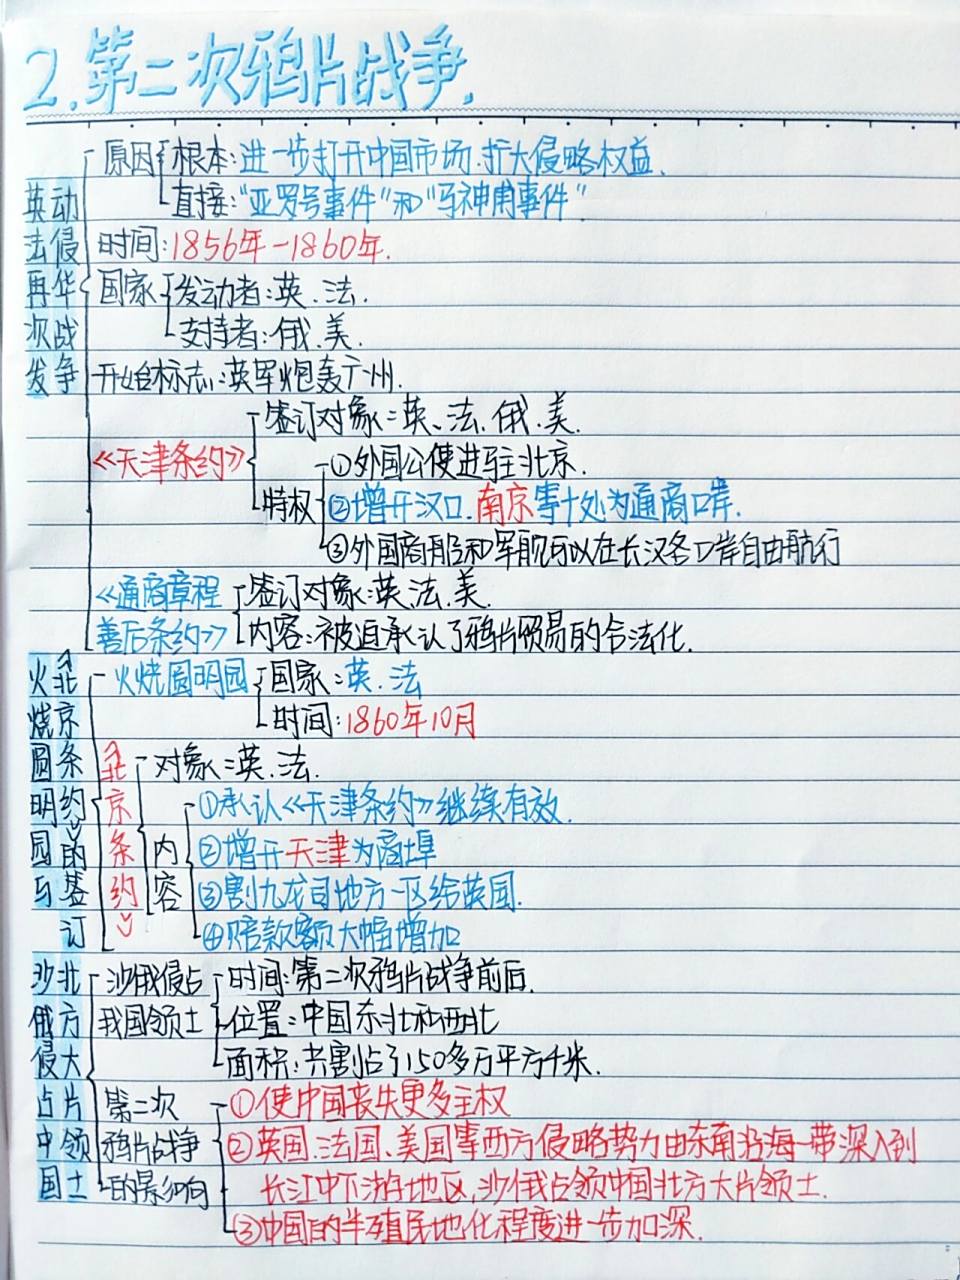 2.第二次鸦片战争.
英法再次发动侵华战争
原因
根本:进一步打开中国市场.扩大侵略权益.
直接:"亚罗号事件"和"马神甫事件"
时间:1856年-1860年.
国家
发动者:英.法.
支持者:俄.美.
开始标志:英军炮轰广州.
《天津条约》
签订对象:英、法.俄.美.
特权
①外国公使进驻北京.
②增开汉口.南京等十处为通商口岸.
③外国商船和军舰可以在长汉各口岸自由航行
《通商章程
善后条约》
签订对象:英.法.美.
内容:被迫承认了鸦片贸易的合法化.
火烧圆明园与《北京条约》的签订
火烧圆明园
国家:英.法
时间:1860年10月
《北京条约》
对象:英.法.
内容
①承认《天津条约》继续有效.
②增开天津为商埠
③割九龙司地方一区给英国.
④赔款额大幅增加
沙俄侵占中国北方大片领土
沙俄侵占
我国领土
时间:第二次鸦片战争前后.
位置:中国东北和西北
面积:共割占了150多万平方千米.
第二次
鸦片战争
的影响
①使中国丧失更多主权
②英国.法国、美国等西方侵略势力由东南沿海一带深入到
长江中下游地区,沙俄占领中国北方大片领土.
③中国的半殖民地化程度进一步加深.